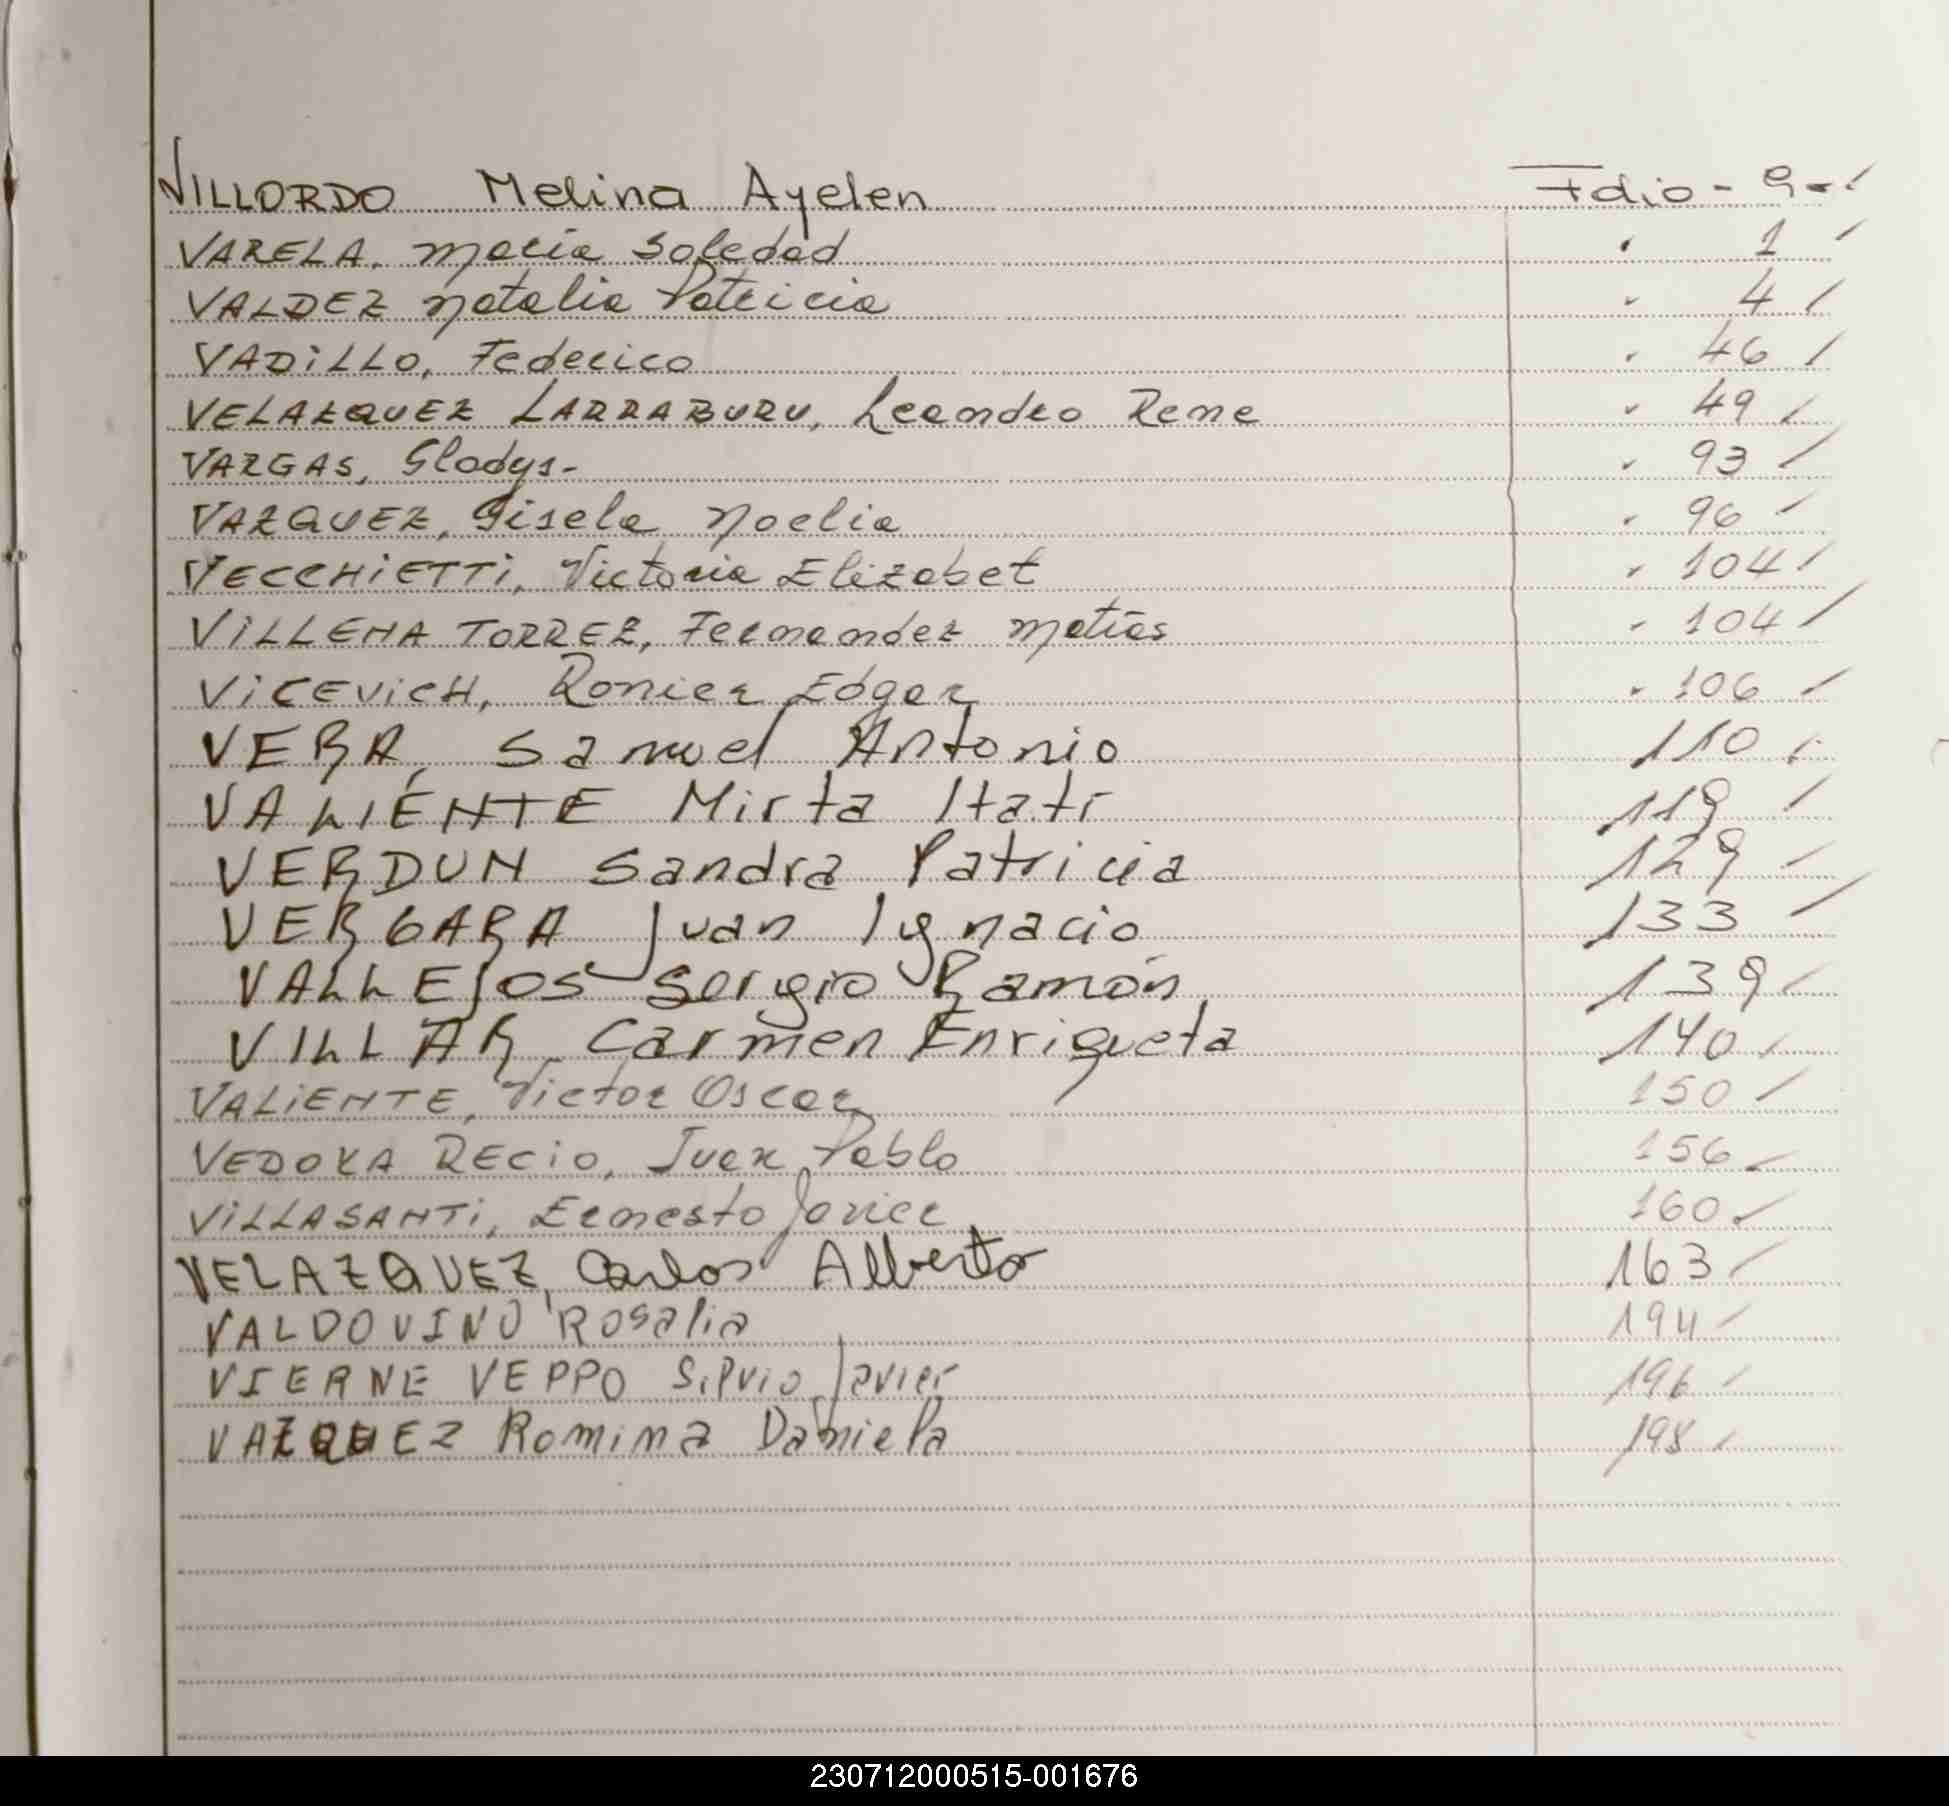 VILLORDO Melina Ayelen Folio - 9 -✓
VARELA, Maria Soledad " 1 ✓
VALDEZ Natalia Patricia " 4 ✓
VADiLLO, Federico " 46 ✓
VELAZQUEZ LARRABURU, Leandro Rene " 49 ✓
VARGAS, Gladys- " 93 ✓
VAZQUEZ, Gisela Noelia " 96 ✓
VECCHiETTi, Victoria Elizabet " 104 ✓
ViLLENA TORREZ, Fernandez Matías " 104 ✓
ViCEViCH, Ronier Edgar " 106 ✓
VERA, Samuel Antonio 110 ✓
VALIENTE Mirta Itatí 119 ✓
VERDUN Sandra Patricia 129 ✓
VERGARA Juan Ignacio 133 ✓
VALLEJOS Sergio Ramón 139 ✓
VILLAR Carmen Enriqueta 140 ✓
VALiENTE, Victor Oscar 150 ✓
VEDOYA RECiO, Juan Pablo 156 ✓
ViLLASANTi, Ernesto Javier 160 ✓
VELAZQUEZ, Carlos Alberto 163 ✓
VALDOVINO Rosalia 194 ✓
VIERNE VEPPO Silvio Javier 196 ✓
VAZQUEZ Romina Daniela 198 ✓
230712000515-001676